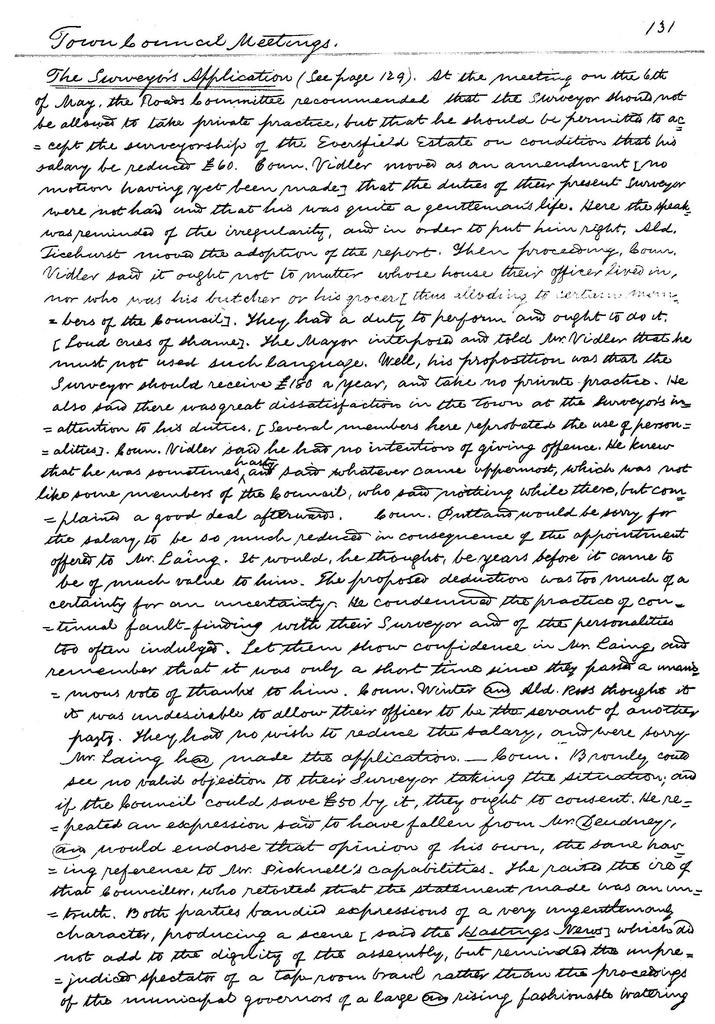 131
Town Council Meetings.
The Surveyor's Application (See page 129). At the meeting on the 6th
of May, the Roads Committee recommended that the Surveyor should not
be allowed to take private practice, but that he should be permitted to ac=
=cept the surveyorship of the Eversfield Estate on condition that his
salary be reduced £60. Coun. Vidler moved as an amendment [no
motion having yet been made] that the duties of their present Surveyor
were not hard and that his was quite a gentleman's life. Here the speak-
was reminded of the irregularity, and in order to put him right, Ald.
Ticehurst moved the adoption of the report. Then proceeding, Coun.
Vidler said it ought not to matter whose house their officer lived in,
nor who was his butcher or his grocer [thus alluding to certain mem=
=bers of the Council]. They had a duty to perform and ought to do it.
[Loud cries of shame]. The Mayor interposed and told Mr. Vidler that he
must not used such language. Well, his proposition was that the
Surveyor should receive £180 a year, and take no private practice. He
also said there was great dissatisfaction in the town at the Surveyor's in=
=attention to his duties. [Several members here reprobated the use of person=
=alities]. Coun. Vidler said he had no intention of giving offence. He knew
that he was sometimes hasty and said whatever came uppermost, which was not
like some members of the Council, who said nothing while there, but com=
=plained a good deal afterwards. Coun. Putland would be sorry for
the salary to be so much reduced in consequence of the appointment
offered to Mr. Laing. It would, he thought, be years before it came to
be of much value to him. The proposed deduction was too much of a
certainty for an uncertainty. He condemned the practice of con=
=tinual fault-finding with their Surveyor and of the personalities
too often indulged. Let them show confidence in Mr. Laing, and
remember that it was only a short time since they passed a unani
=mous vote of thanks to him. Coun. Winter and Ald. Ross thought it
it was undesirable to allow their officer to be the servant of another
party. They had no wish to reduce the salary, and were sorry
Mr. Laing had made the application. — Coun. Bromley could
see no valid objection to their Surveyor taking the situation, and
if the Council could save £50 by it, they ought to consent. He re=
=peated an expression said to have fallen from Mr. Deudney,
and would endorse that opinion of his own, the same hav=
=ing reference to Mr. Picknell's capabilities. The raised the ire of
that Councillor, who retorted that the statement made was an un=
=truth. Both parties bandied expressions of a very ungentlemanly
character, producing a scene [said the Hastings News] which did
not add to the dignity of the assembly, but reminded the unpre=
=judiced spectator of a tap room brawl rather than the proceedings
of the municipal governors of a large and rising fashionable watering